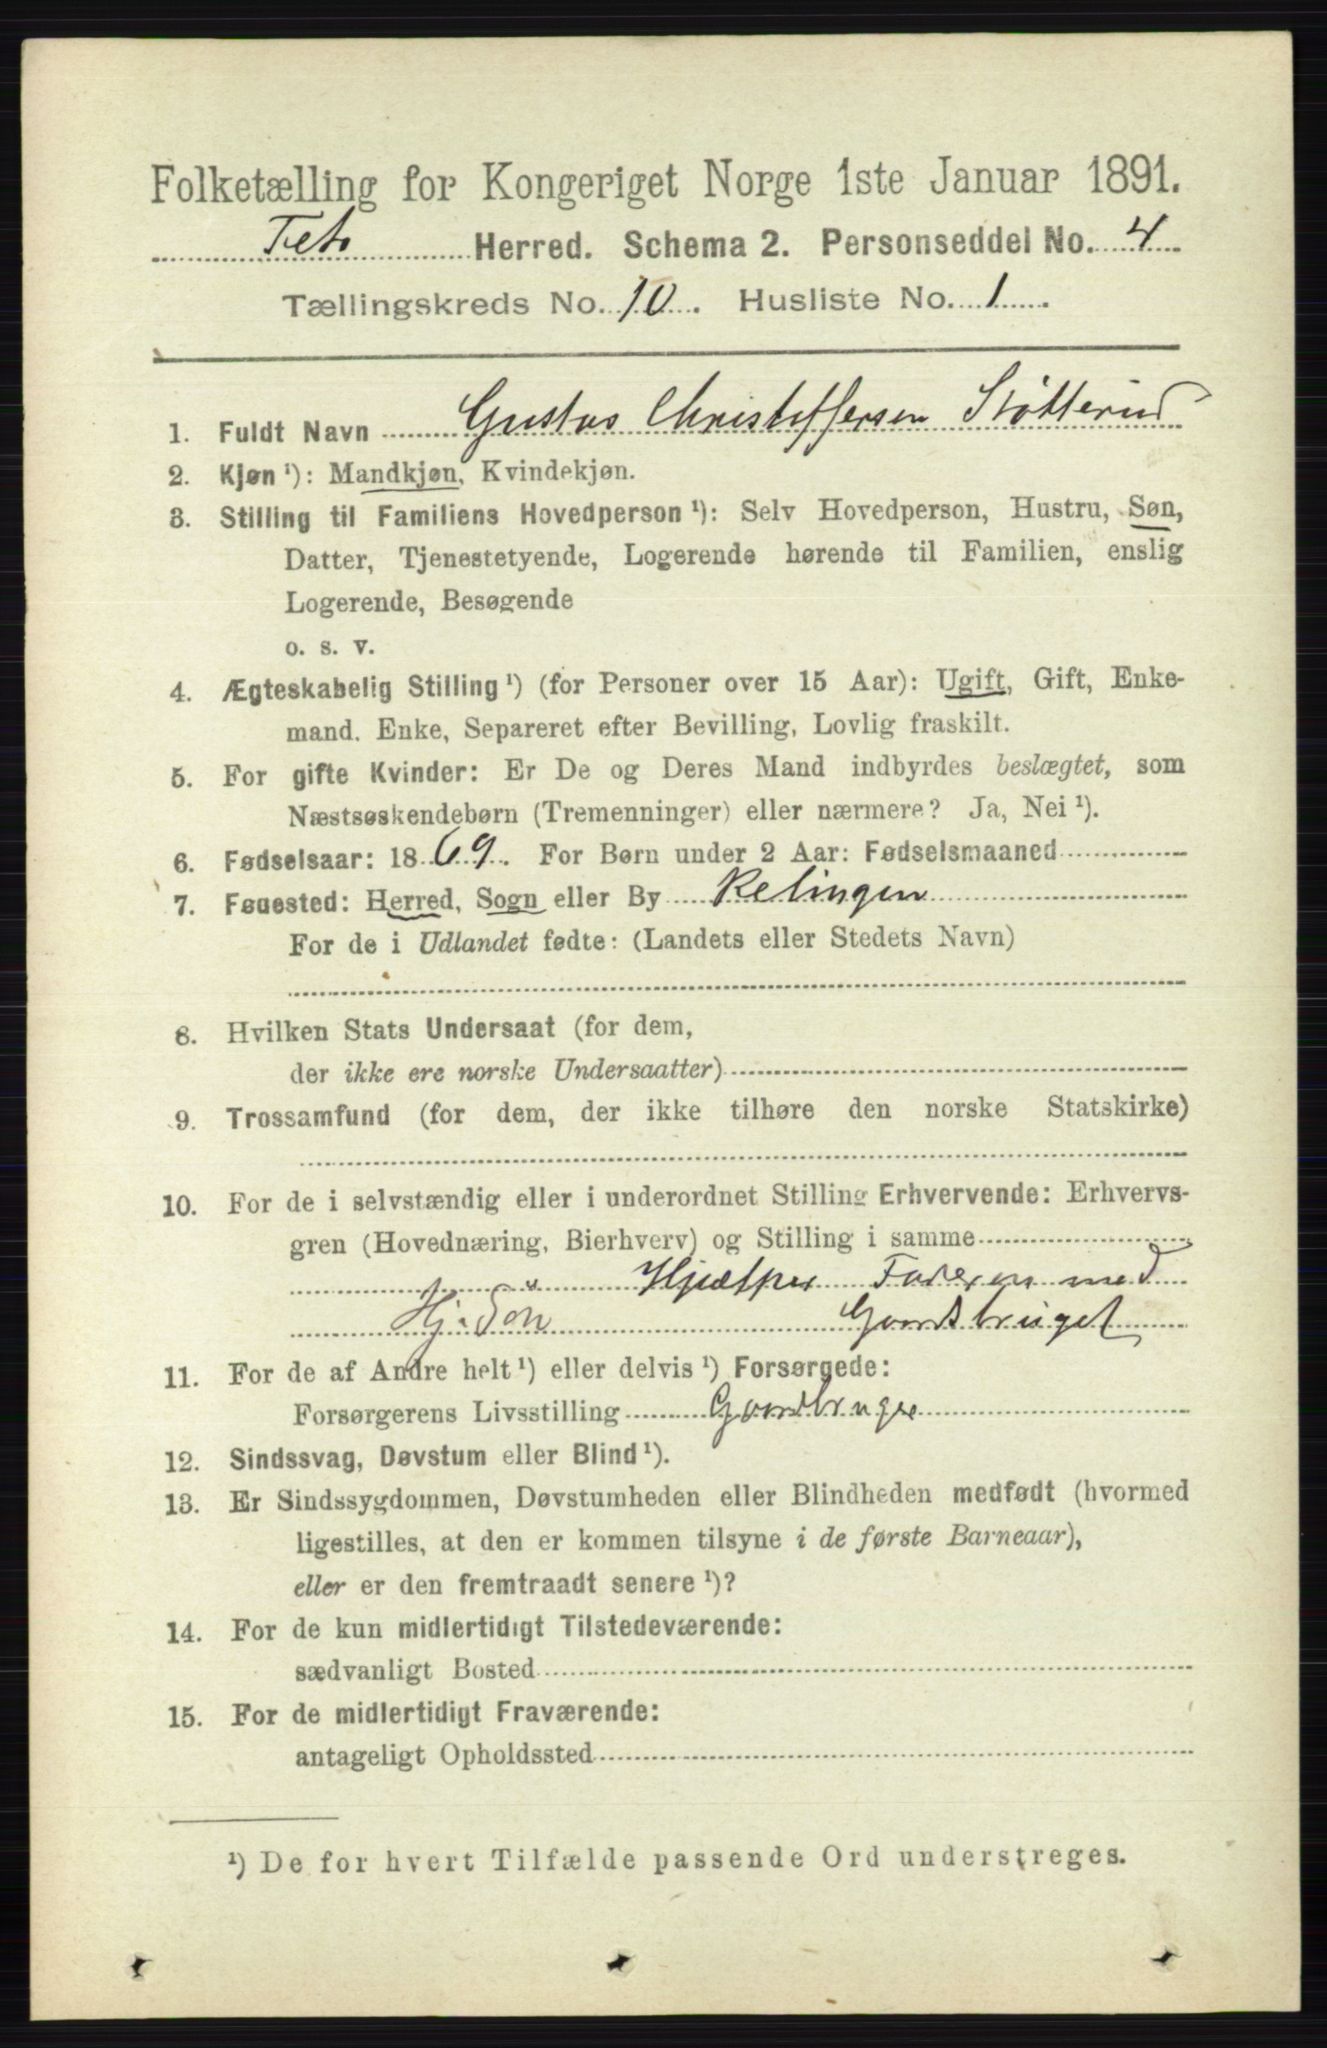 Folketælling for Kongeriget Norge 1ste Januar 1891.
Fet Herred. Schema 2. Personseddel No. 4
Tællingskreds No. 10. Husliste No. 1.
1. Fuldt Navn Gustav Christoffersen Støtterud
2. Kjøn ¹): Mandkjøn, Kvindekjøn.
3. Stilling til Familiens Hovedperson ¹): Selv Hovedperson, Hustru, Søn,
Datter, Tjenestetyende, Logerende hørende til Familien, enslig
Logerende, Besøgende
o. s. v.
4. Ægteskabelig Stilling ¹) (for Personer over 15 Aar): Ugift, Gift, Enke-
mand. Enke, Separeret efter Bevilling, Lovlig fraskilt.
5. For gifte Kvinder: Er De og Deres Mand indbyrdes beslægtet, som
Næstsøskendebørn (Tremenninger) eller nærmere? Ja, Nei ¹).
6. Fødselsaar: 1869. For Børn under 2 Aar: Fødselsmaaned
7. Føuested: Herred, Sogn eller By Relingen
For de i Udlandet fødte: (Landets eller Stedets Navn)
8. Hvilken Stats Undersaat (for dem,
der ikke ere norske Undersaatter)
9. Trossamfund (for dem, der ikke tilhøre den norske Statskirke)
10. For de i selvstændig eller i underordnet Stilling Erhvervende: Erhvervs-
gren (Hovednæring, Bierhverv) og Stilling i samme
Hjælper Faderen med
Hj. Sön Gaardsbruget
11. For de af Andre helt ¹) eller delvis ¹) Forsørgede:
Forsørgerens Livsstilling Gaardbruger
12. Sindssvag, Døvstum eller Blind ¹).
13. Er Sindssygdommen, Døvstumheden eller Blindheden medfødt (hvormed
ligestilles, at den er kommen tilsyne i de første Barneaar),
eller er den fremtraadt senere ¹)?
14. For de kun midlertidigt Tilstedeværende:
sædvanligt Bosted
15. For de midlertidigt Fraværende:
antageligt Opholdssted
¹) De for hvert Tilfælde passende Ord understreges.